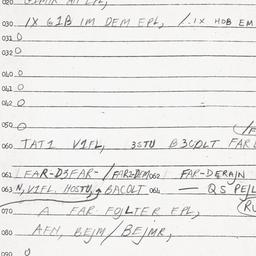 030 1X G1B 1M DEM EPL, /.1X HOB EM
031 0
032 0
040 0
041 0
042 0
050 0
060 TAT1 V1FL, 3STU B3COLT FAR
061 FAR-D3FAR-/FAR2DEM062 FAR-DERAJN
063 N,V1FL. HOSTU, BACOLT 064 — QS PEJL
070 A FAR FOJLTER EPL,
080 AFN, BEJM/BEJMR,
090 0